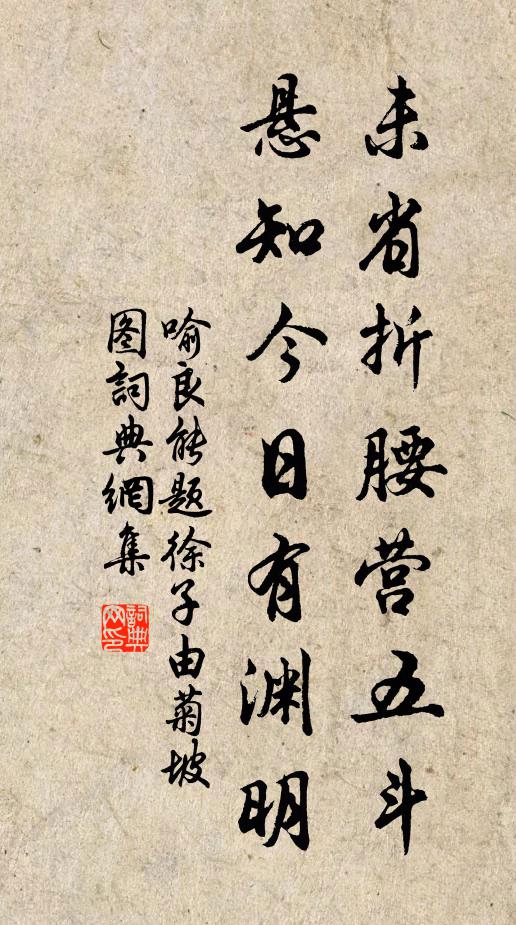 未省折腰营五斗
悬知今日有渊明
喻良能题徐子由菊坡
图词典網集
詞典網印